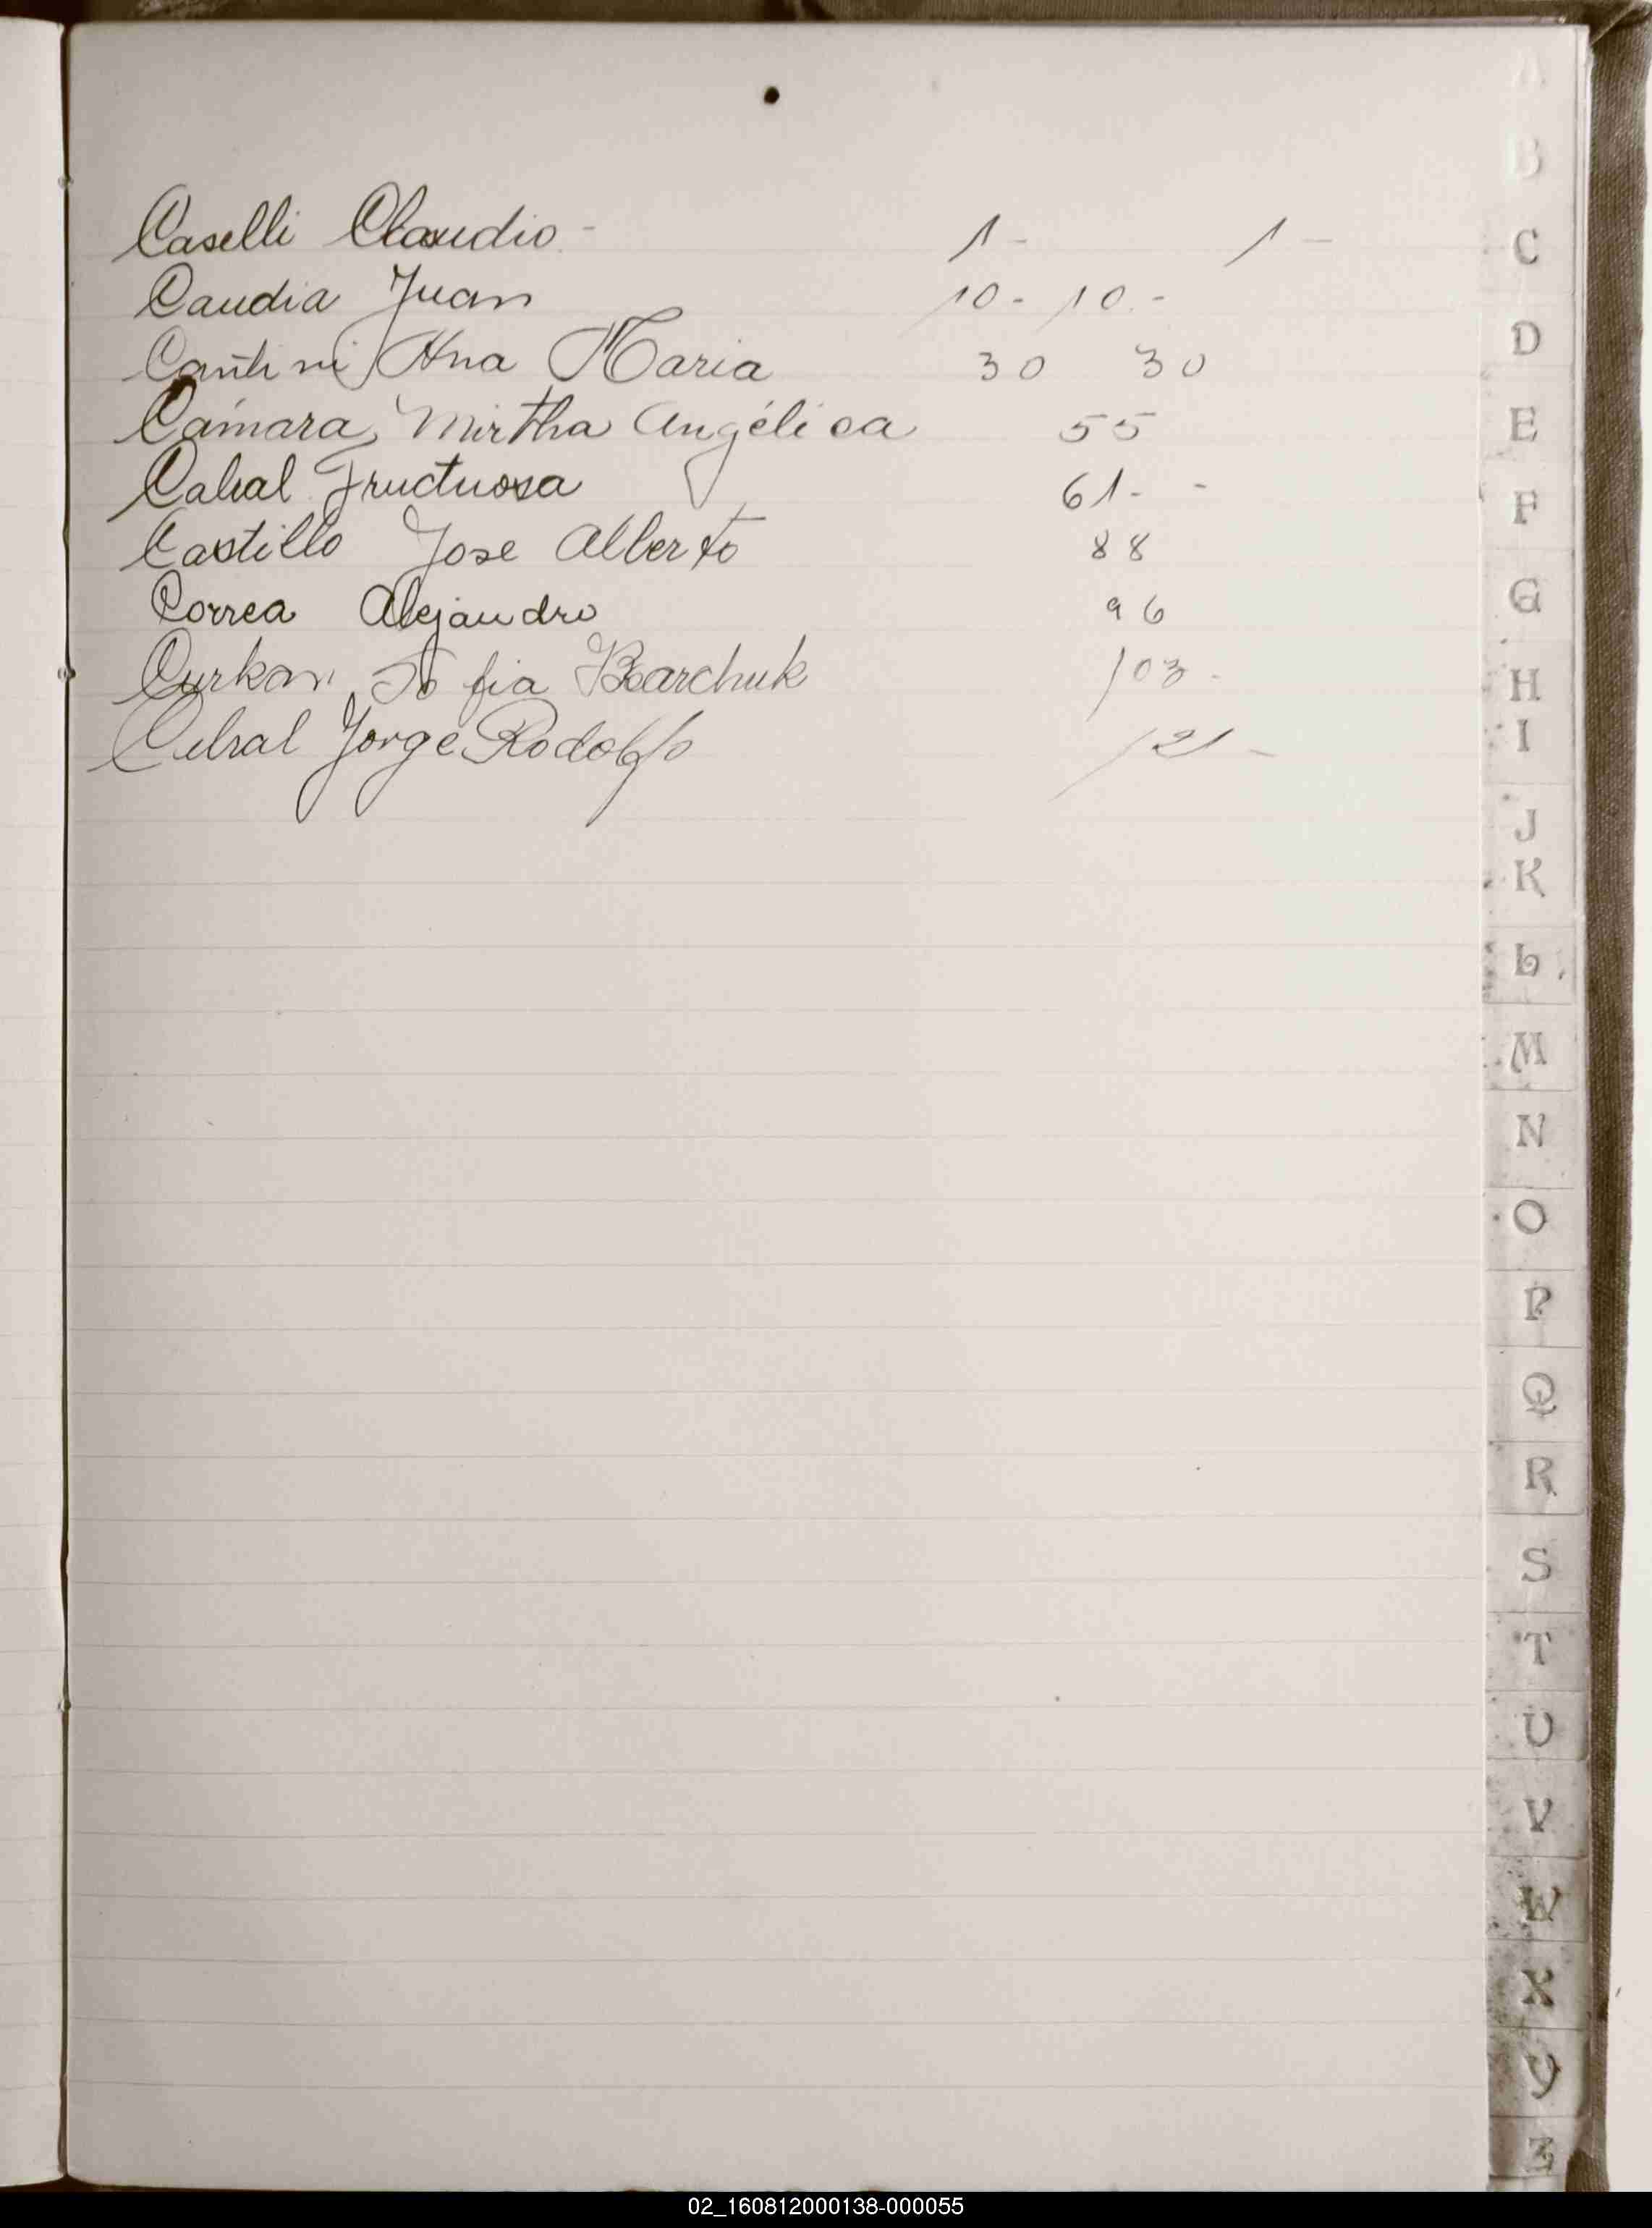 Caselli Claudio - 1 - 1 -
Caudia Juan 10 - 10 . -
Cantini Ana Maria 30 30
Cámara, Mirtha Angélica 55
Cabral Fructuosa 61 - -
Castillo Jose Alberto 88
Correa Alejandro 96
Curkan Sofia Barchuk 103 -
Cubral Jorge Rodolfo 121 -
A
B
C
D
E
F
G
H
I
J
K
L
M
N
O
P
Q
R
S
T
U
V
W
X
Y
Z
02_160812000138-000055